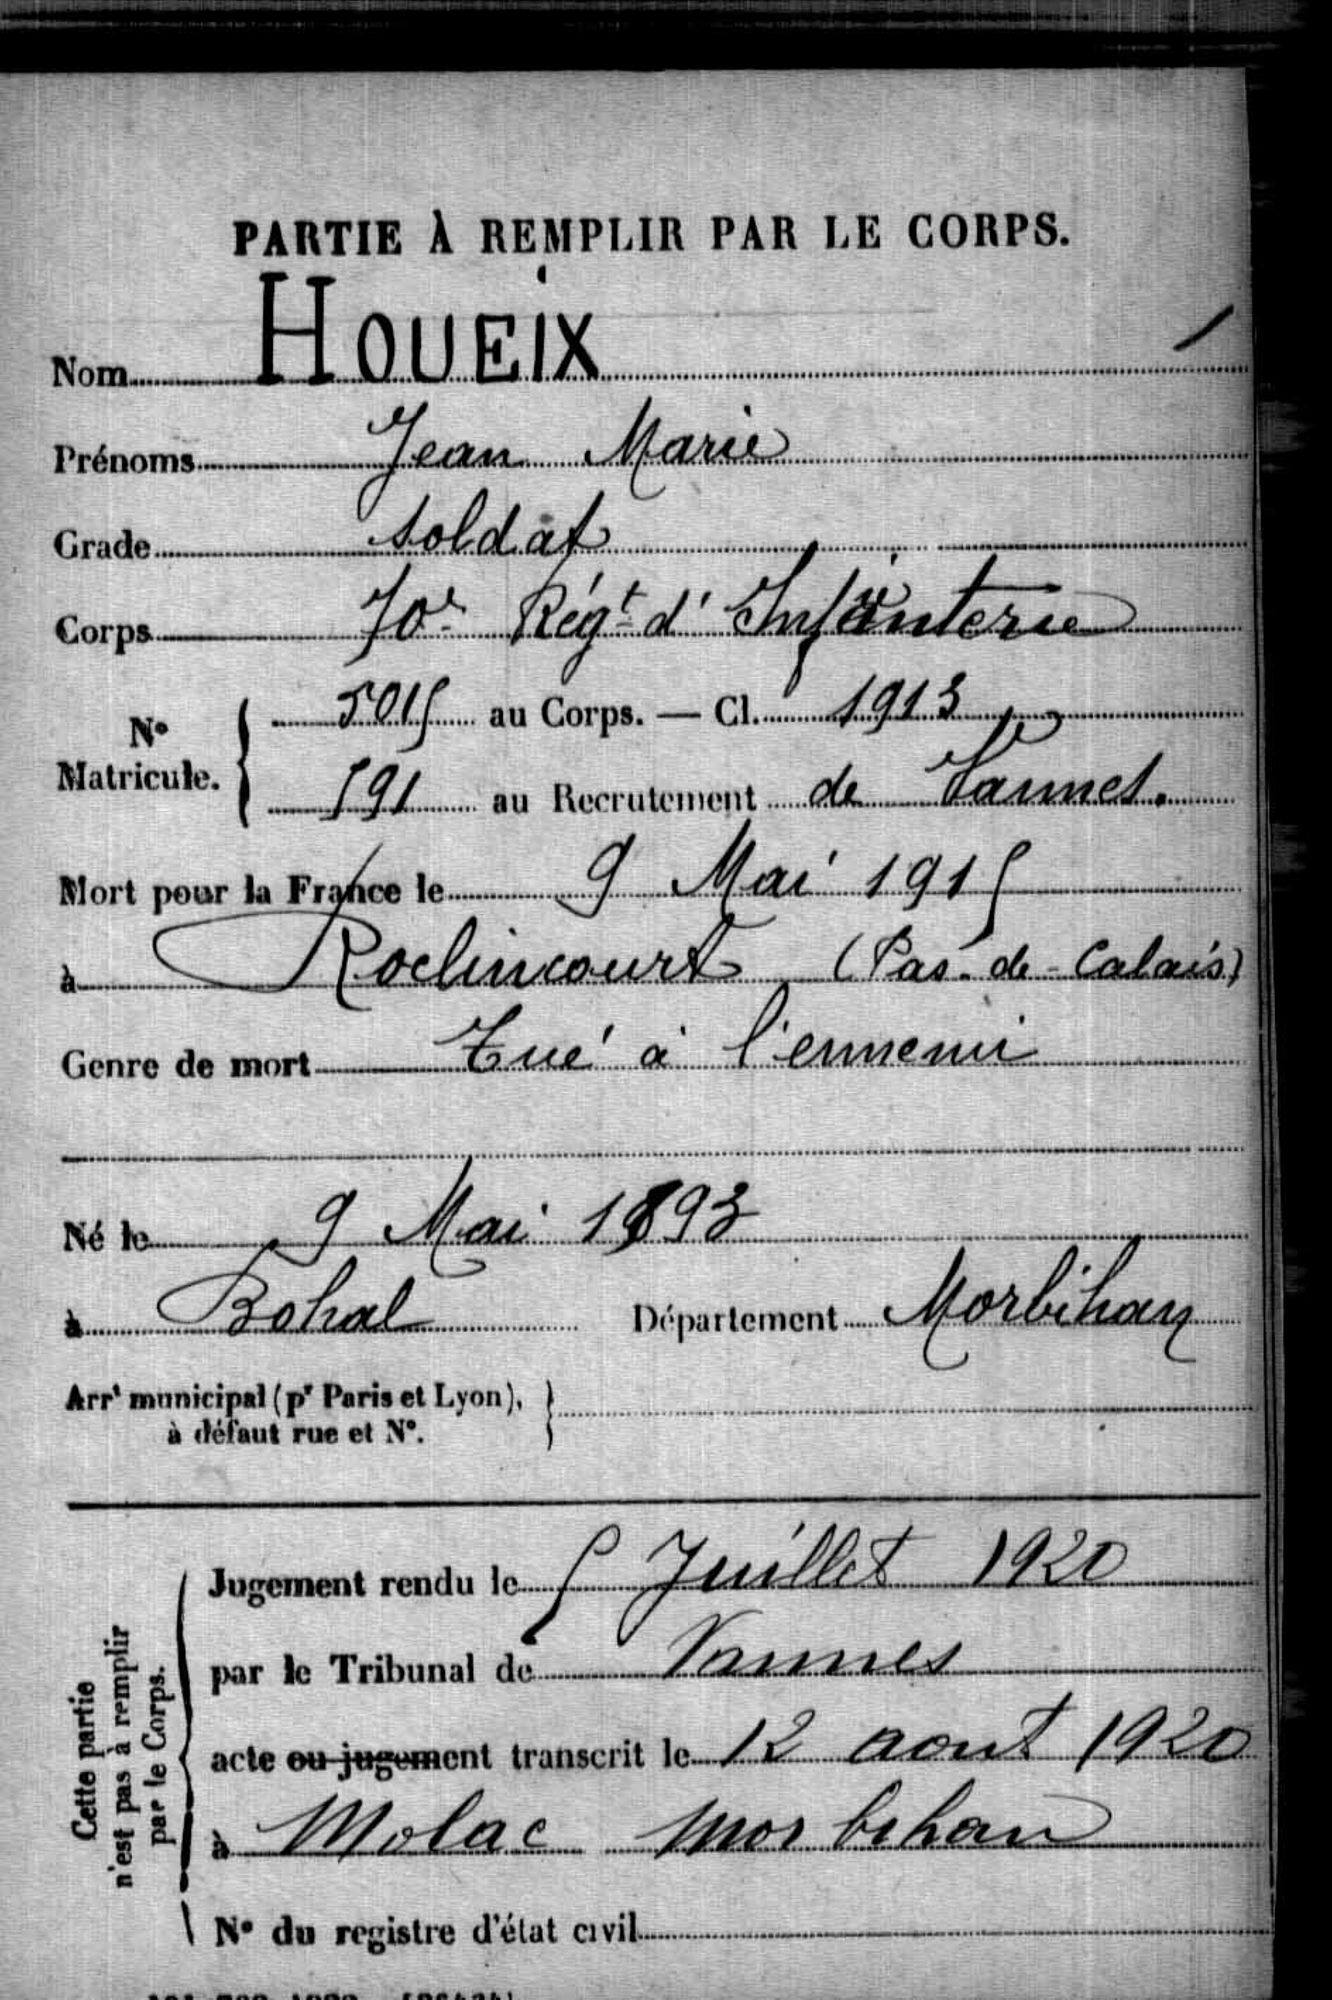 PARTIE À REMPLIR PAR LE CORPS.
Nom HOUEIX
Prénoms Jean Marie
Grade Soldat
Corps 70e Régt d'Infanterie
No Matricule. 5015 au Corps. — Cl. 1913
591 au Recrutement de Vannes.
Mort pour la France le 9 Mai 1915
à Roclincourt (Pas-de-Calais)
Genre de mort Tué à l'ennemi
Né le 9 Mai 1893
à Bohal Département Morbihan
Arrt municipal (pr Paris et Lyon),
à défaut rue et No.
Cette partie
n'est pas à remplir
par le Corps.
Jugement rendu le 5 Juillet 1920
par le Tribunal de Vannes
acte ou jugement transcrit le 12 aout 1920
à Molac Morbihan
No du registre d'état civil